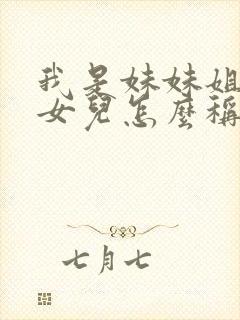 我是妹妹姐
女兒怎麼稱
七月七